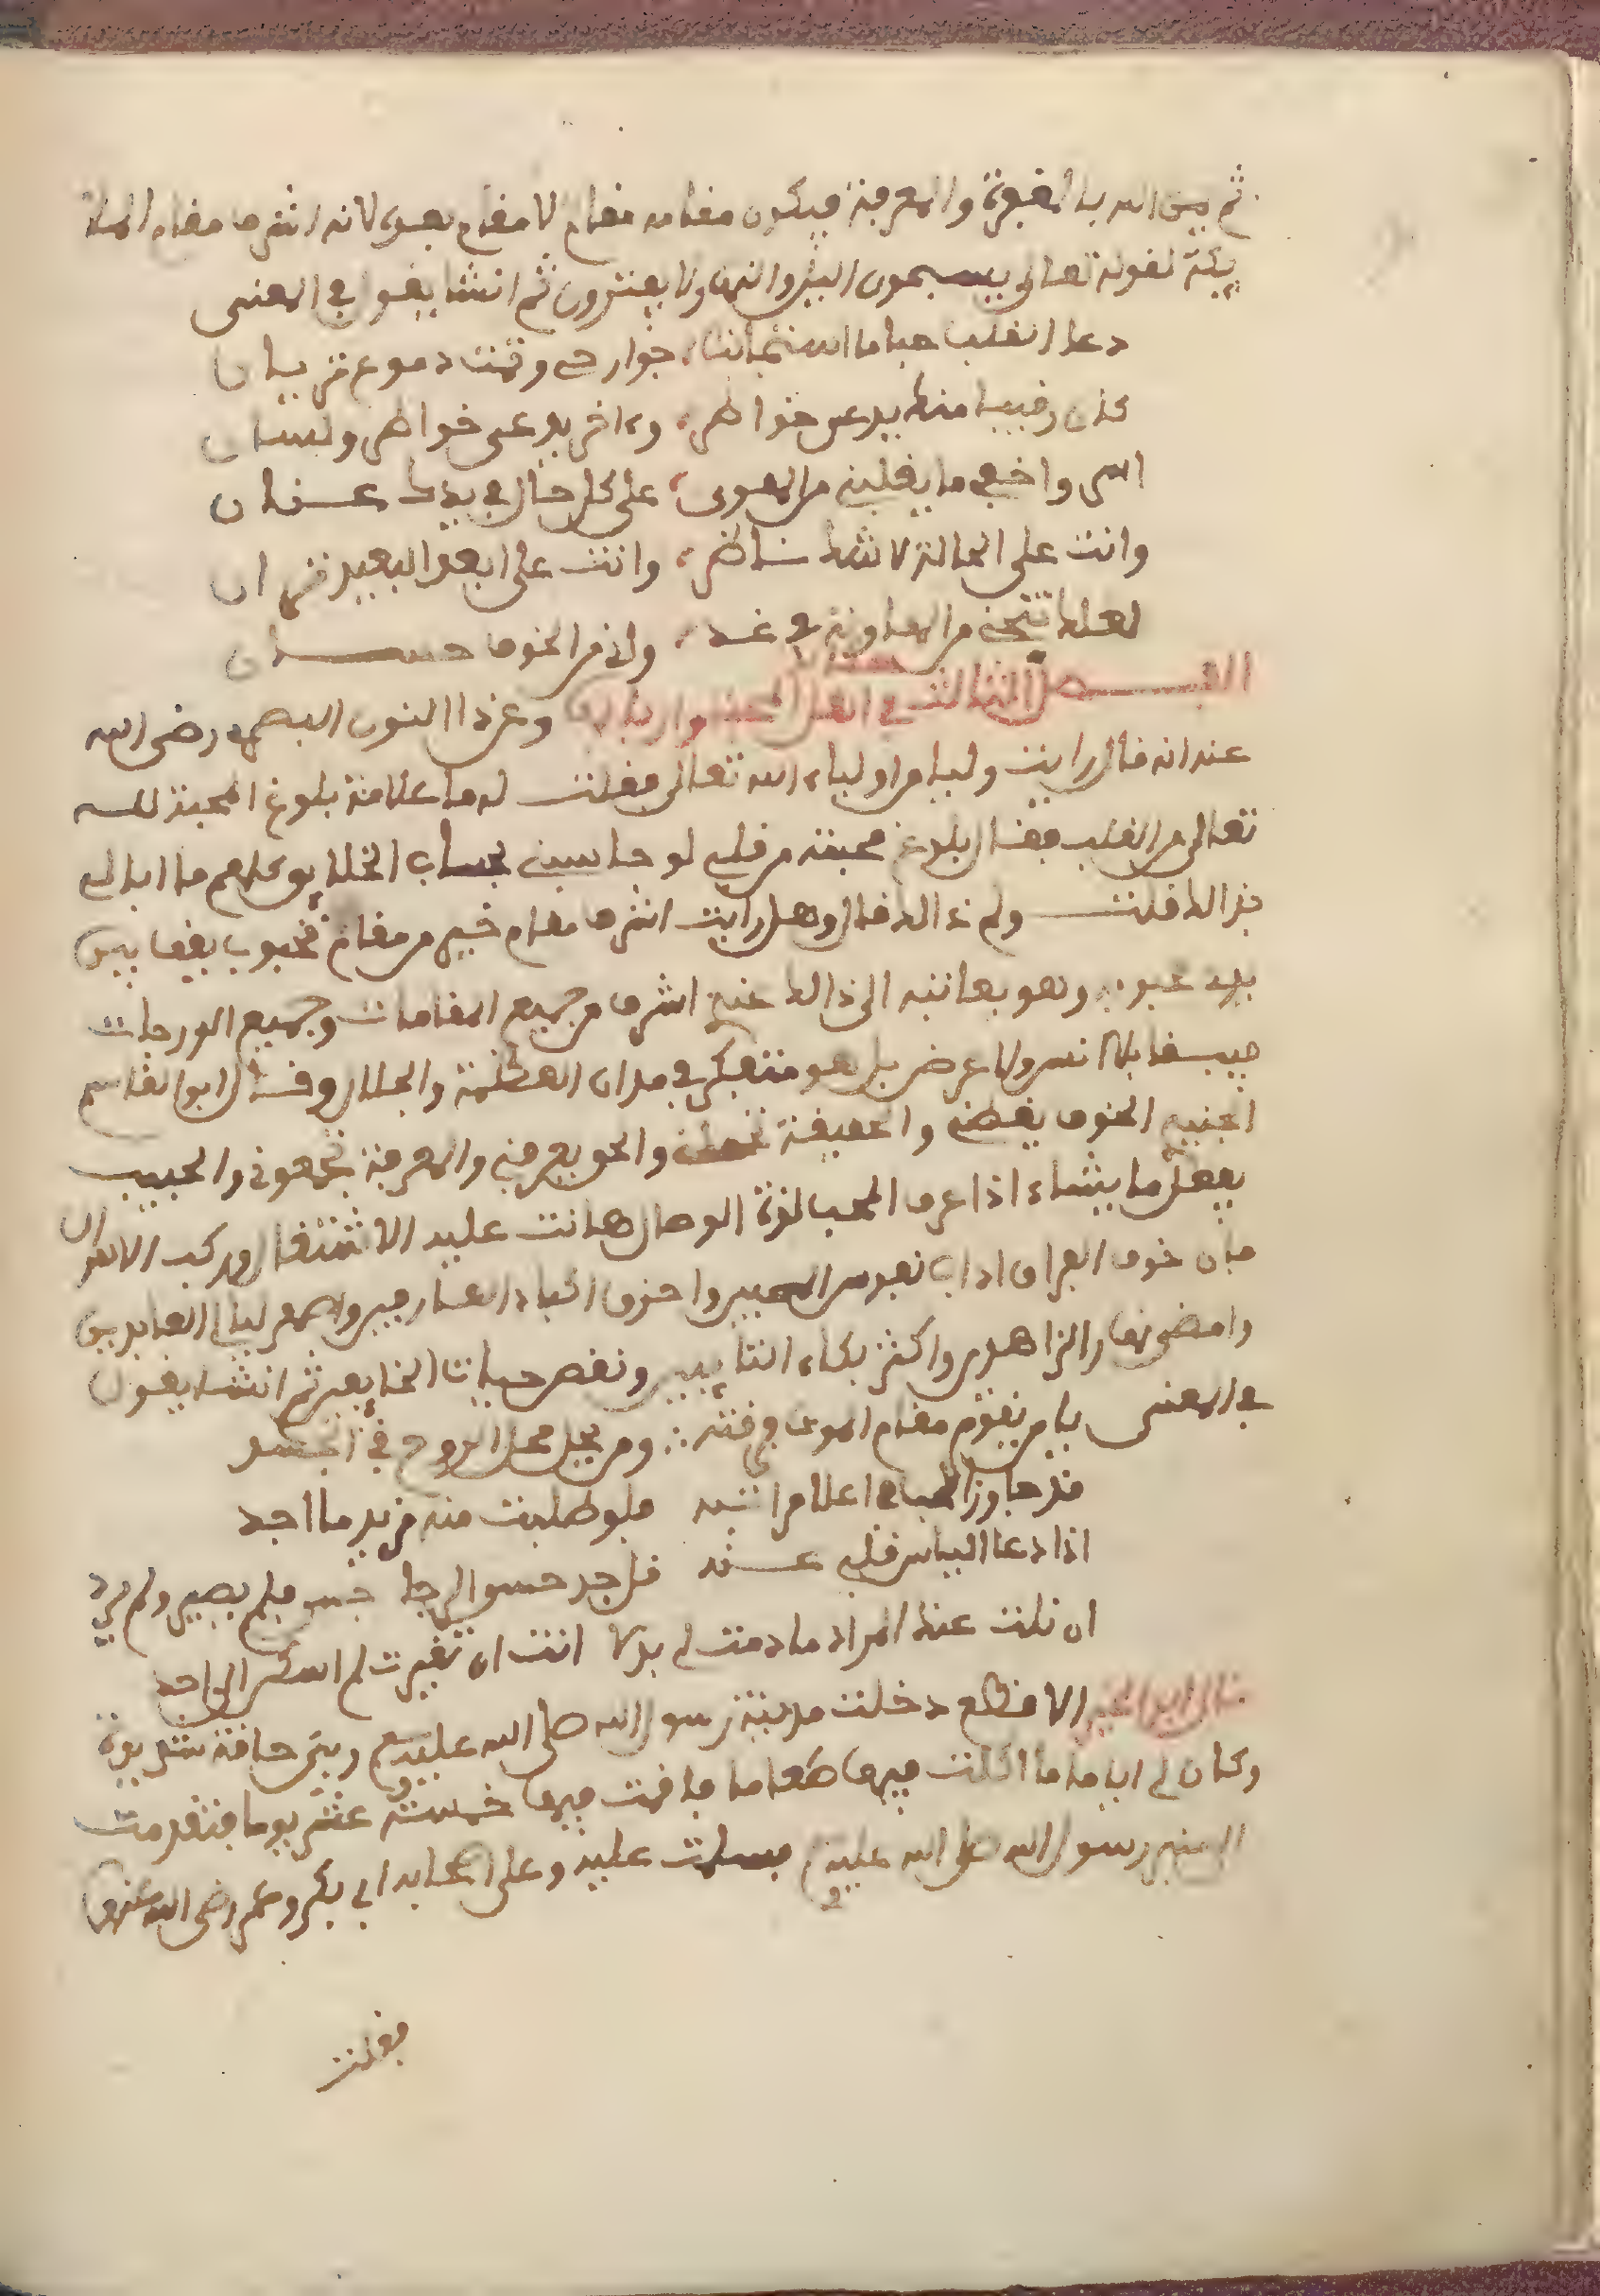 ثم يمن الله بالفجرة والمعرفة فيكون مقامه مقام لا مقام بعده لانه اشرف مقام الملا
يكة لقوله تعالى يسبحون اليل والنهار ولا يفترون ثم انشا يقول في المعنى
دعا القلب حباما استجابت جوارحي وفمت دموع من بيان
كان رقيبا منك يرعى خواطري واخر يرعى خواطري ولسان
اسى واخفي ما بقلبي من الهوى على كل حال في يديك عنان
وانت على الحالة لا شك ناظري وانت على ابعد البعيد تران
لعلك تنجني من الهاوية في غد واني من الخوف حسان
الفصل الثالث في اهل المحبة واربابها وعن ذا النون المصري رضي الله
عنه انه قال رايت وليا من اولياء الله تعالى فقلت له ما علامة بلوغ المحبة لله
تعالى من القلب فقال بلوغ محبته من قلبي لو حاسبني بحساب الخلايق كلهم ما ابالي
بذالك قلت ولم ذالك قال وهل رايت اشرف مقام خير من مقام محبوب يقف بين
يدي محبوبه وهو يعاتبه الى ذالك عندي اشرف من جميع المقامات وجميع الدرجات
فيبقا بلا انس ولا عرض بل هو متفكر في مدان العظمة والجلال وقال ابو القاسم
الجنيد الخوف يقبضني والحقيقة تجمعني والحق يفرقني والمعرفة تمحوني والحبيب
يفعل ما يشاء اذا عرف المحب لذة الوصال هانت عليه الاشتغال وركب الاهوال
فان خوف الفراق اذاب نفوس المحبين واحزن اكباد العارفين واسهر ليالي العابدين
وامضى نهار الزاهدين واكثر بكاء التايبين ونغص حيات الخايفين ثم انشا يقول
في المعنى يا من يقوم مقام الموت فرقته ومن يحل محل الروح في الجسد
قد جاوز الحب في اعلا مراتبه فلو طلبت منه مزيد ما اجد
اذا دعا الياس قلبي عنه قال جد حسن الرجا فلم يصبر ولم يرد
ان نلت عنك المراد ما دمت لي بدلا انت ان تغيرت لم اسكن الى احد
قال ابو الخير الاقطع دخلت مدينة رسول الله صلى الله عليه وسلم وبي حاقة شديدة
وكان لي اياما ما اكلت فيها طعاما فاقمت فيها خمسة عشر يوما فتقدمت
الى منبر رسول الله صلى الله عليه وسلم فسلمت عليه وعلى اصحابه ابي بكر وعمر رضي الله عنهما
فقلت